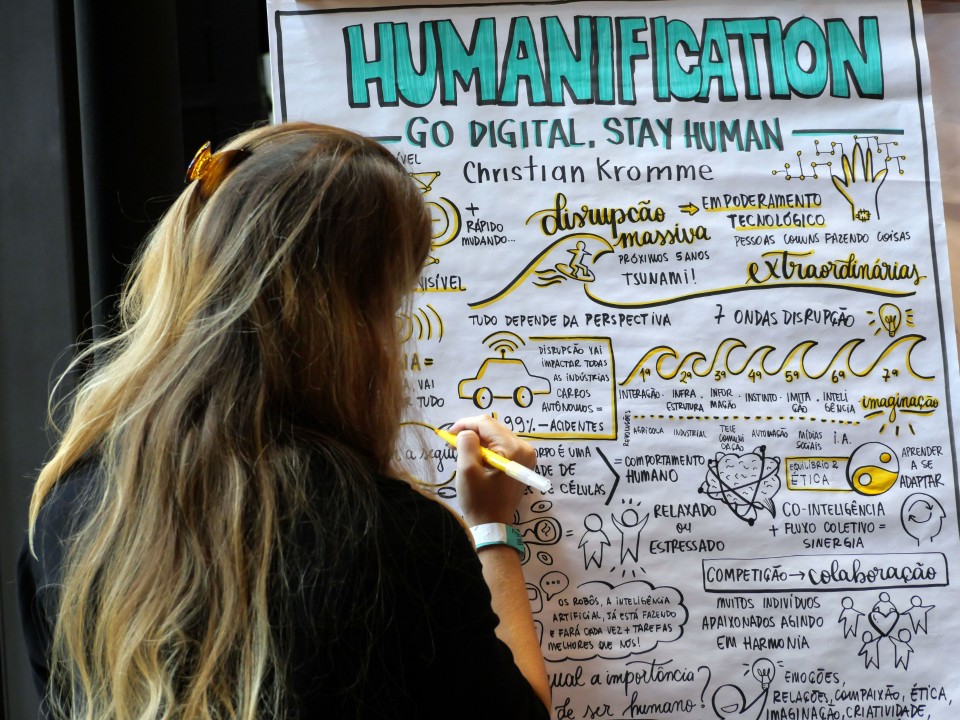 HUMANIFICATION
GO DIGITAL. STAY HUMAN
Christian Kromme
+
RÁPIDO
MUDANDO...
disrupção
massiva
PRÓXIMOS 5 ANOS
TSUNAMI!
EMPODERAMENTO
TECNOLÓGICO
PESSOAS COMUNS FAZENDO COISAS
extraordinárias
TUDO DEPENDE DA PERSPECTIVA
7 ONDAS DISRUPÇÃO
DISRUPÇÃO VAI
IMPACTAR TODAS
AS INDÚSTRIAS
CARROS
AUTÔNOMOS =
99% - ACIDENTES
VAI
TUDO
1ª 2ª 3ª 4ª 5ª 6ª 7ª
INTERAÇÃO · INFRA ESTRUTURA · INFOR MAÇÃO · INSTINTO · IMITA ÇÃO · INTELI GÊNCIA · imaginação
REVOLUÇÕES
AGRÍCOLA INDUSTRIAL TELE COMUNI CAÇÃO AUTOMAÇÃO MÍDIAS SOCIAIS I.A.
É UMA
DE
DE CÉLULAS
= COMPORTAMENTO
HUMANO
EQUILÍBRIO &
ÉTICA
APRENDER
A SE
ADAPTAR
=
RELAXADO
OU
ESTRESSADO
CO-INTELIGÊNCIA
+ FLUXO COLETIVO =
SINERGIA
COMPETIÇÃO → colaboração
OS ROBÔS, A INTELIGÊNCIA
ARTIFICIAL, JÁ ESTÁ FAZENDO
E FARÁ CADA VEZ + TAREFAS
MELHORES QUE NÓS!
MUITOS INDIVÍDUOS
APAIXONADOS AGINDO
EM HARMONIA
qual a importância
de ser humano?
EMOÇÕES,
RELAÇÕES, COMPAIXÃO, ÉTICA,
IMAGINAÇÃO, CRIATIVIDADE,